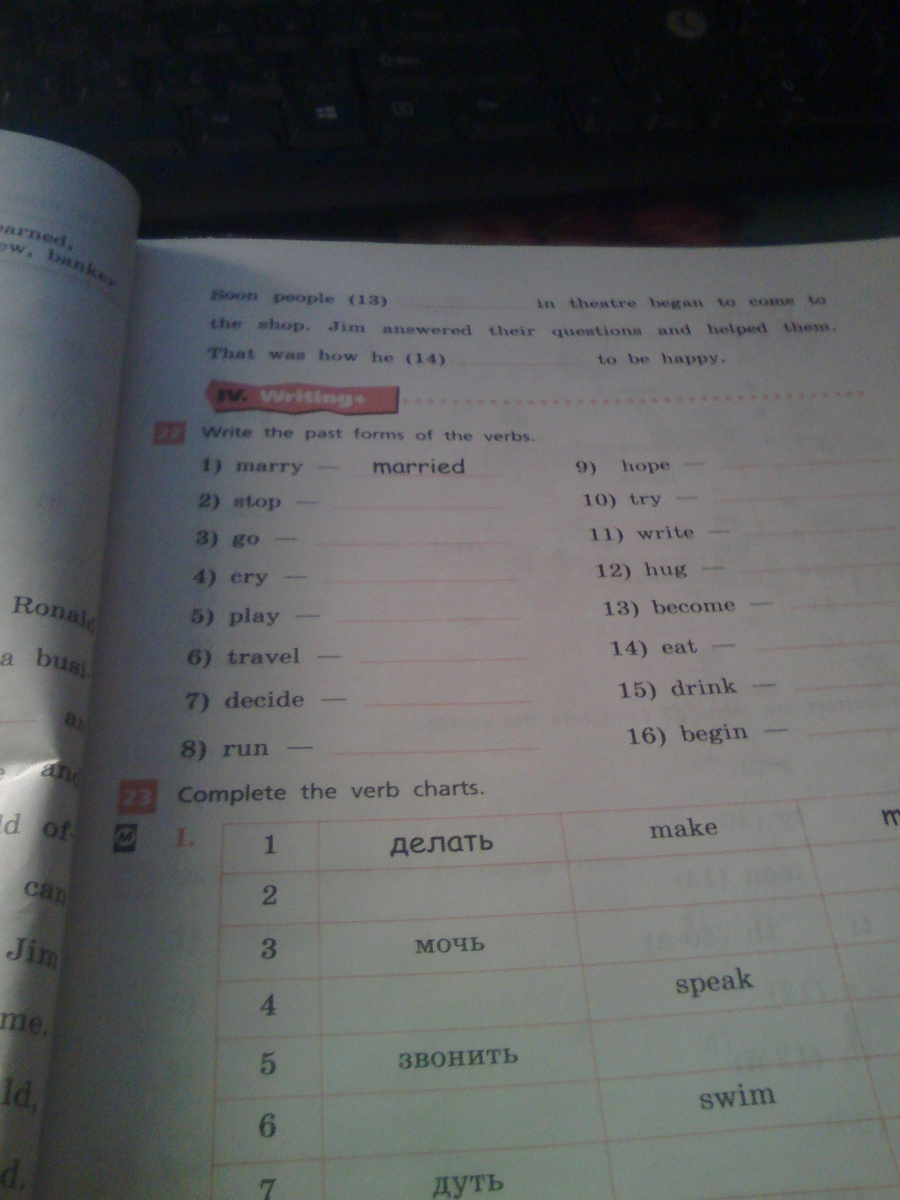 earned,
ew, banker
Ronald
a busi-
and
ld of
can
Jim
me.
ld,
d.
Soon people (13) in theatre began to come to
the shop. Jim answered their questions and helped them.
That was how he (14) to be happy.
IV. Writing+
22 Write the past forms of the verbs.
1) marry — married
2) stop —
3) go —
4) cry —
5) play —
6) travel —
7) decide —
8) run —
9) hope —
10) try —
11) write —
12) hug —
13) become —
14) eat —
15) drink —
16) begin —
23 Complete the verb charts.
I.
1 делать make m
2
3 мочь
4 speak
5 звонить
6 swim
7 дуть